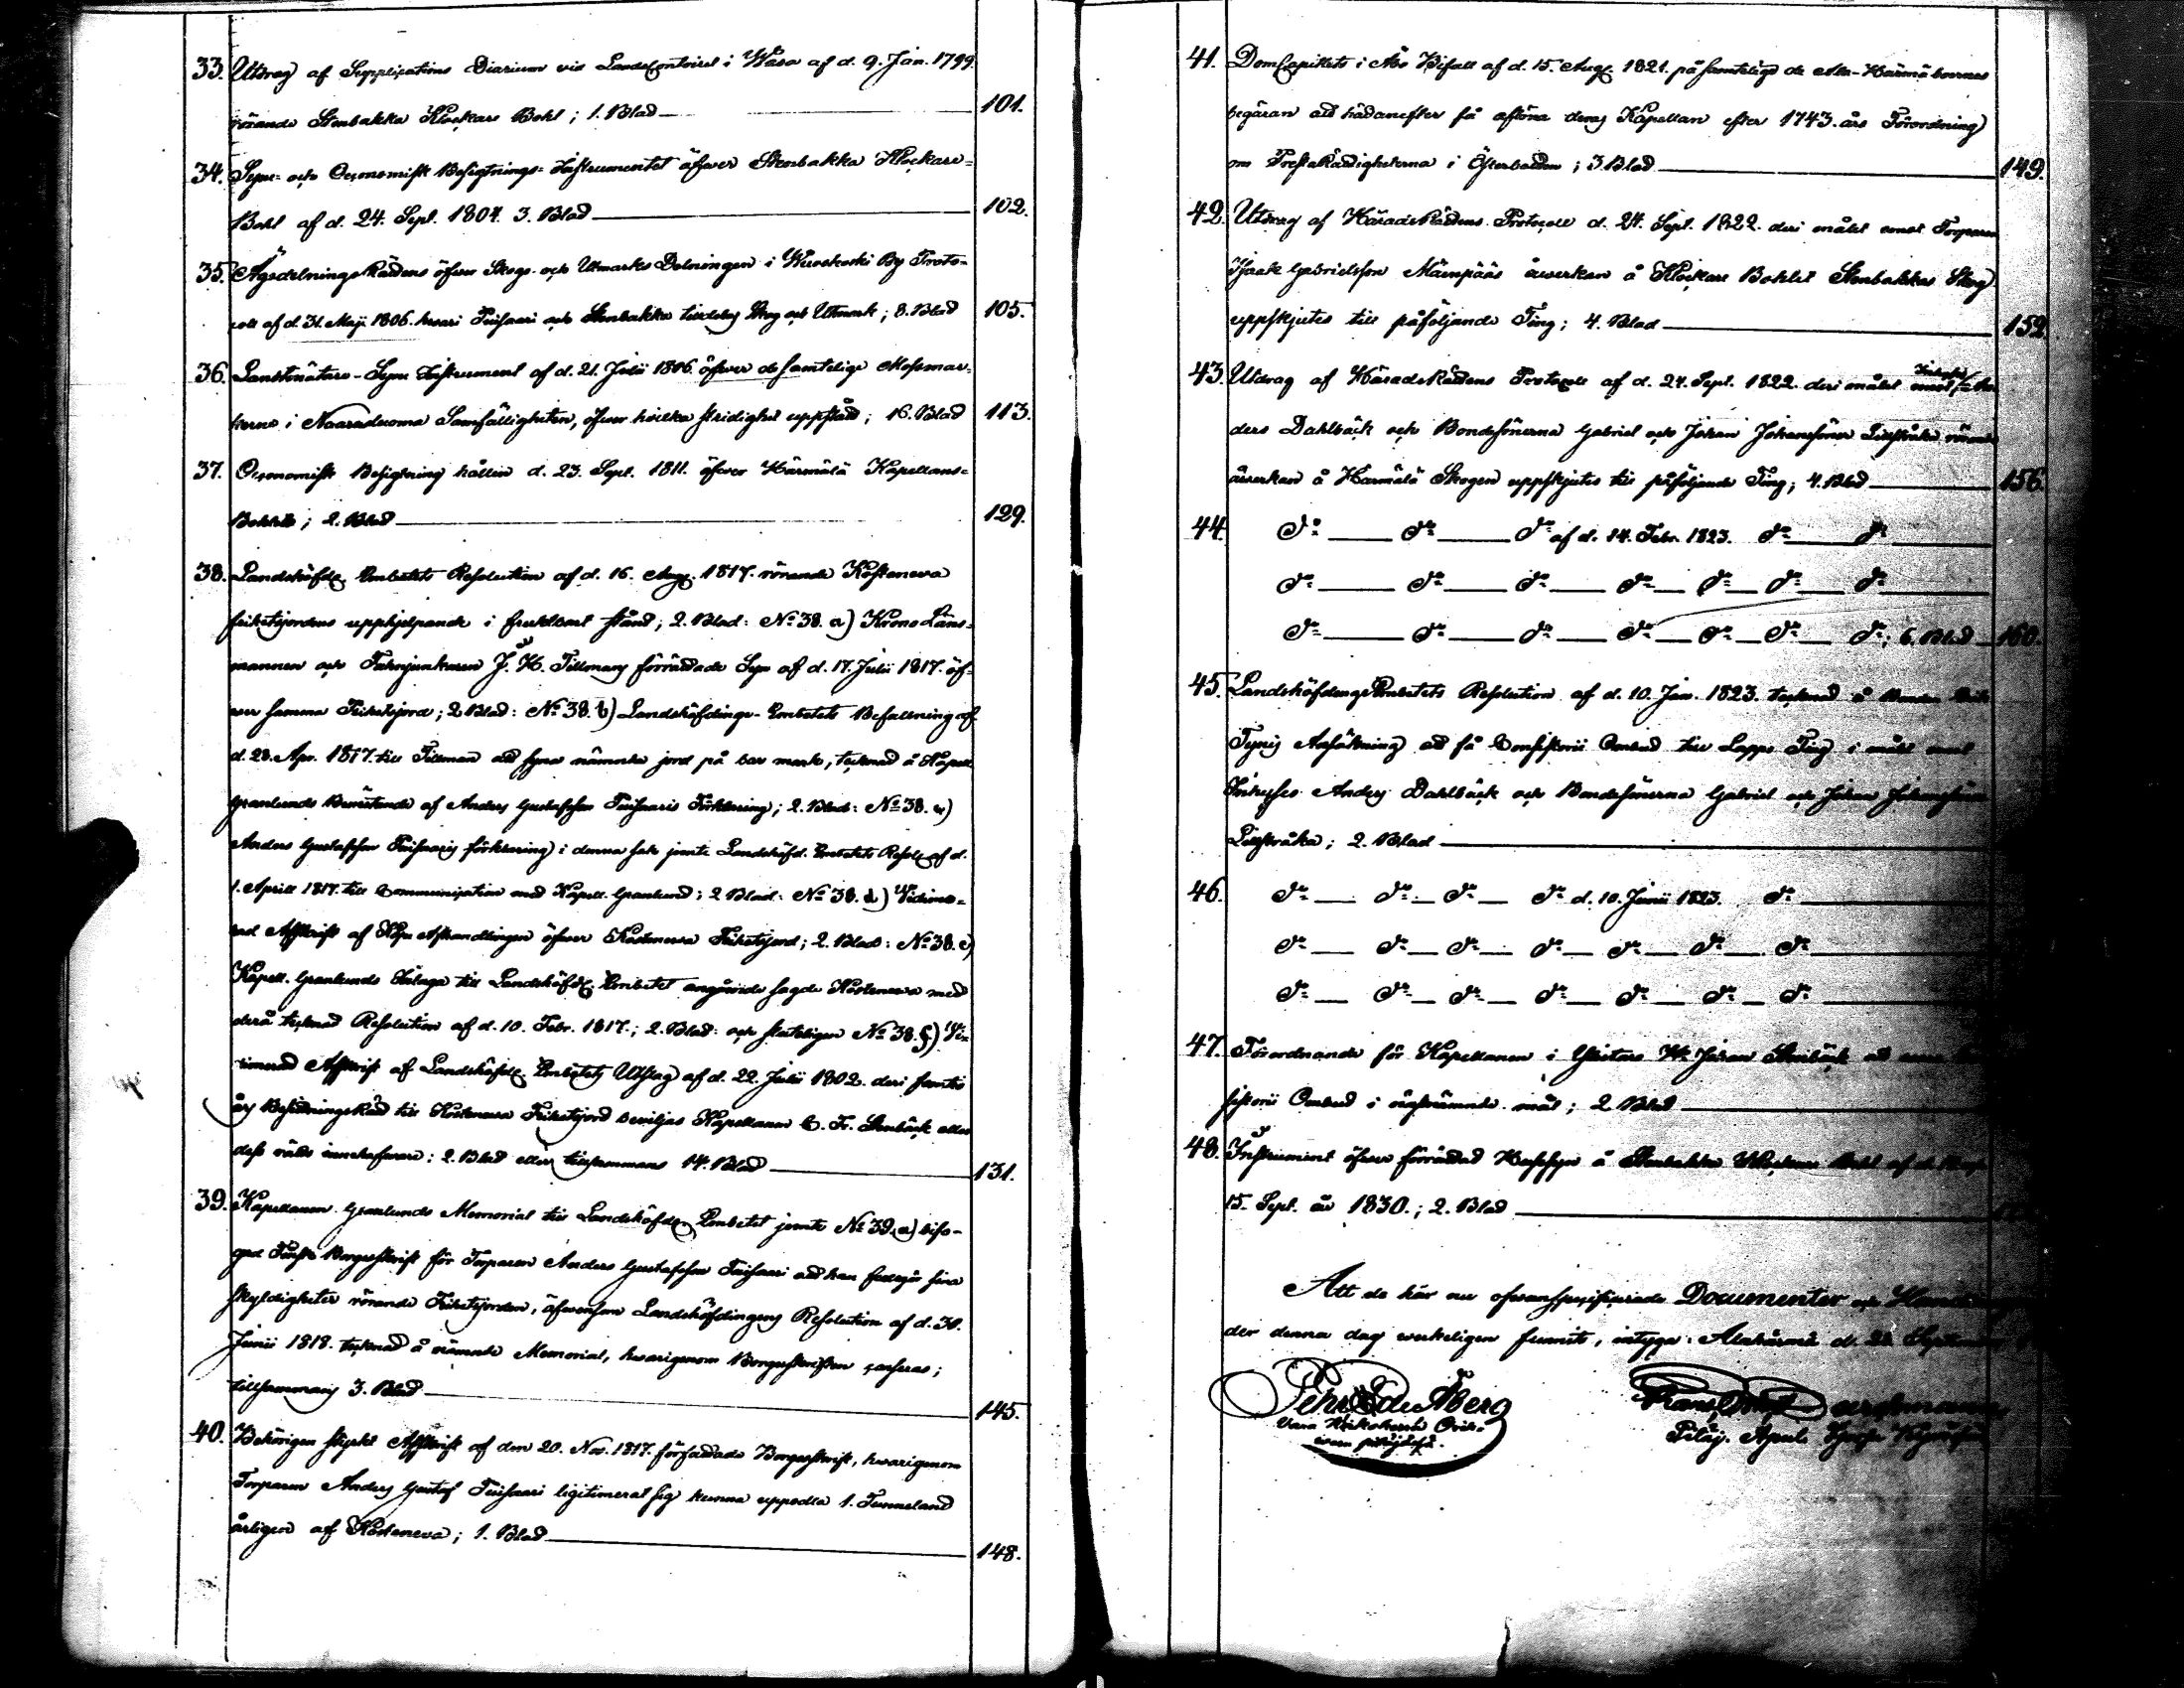 33. Utdrag af Supplications Diarium vid LandsContoiret i Wasa af d. 9. Jan. 1799.
rörande Stenbakka Klockare Bohl; 1. Blad 101.
34. Syne- och Oeconomisk Besigtnings-Instrumentet öfwer Stenbakka Klockare-
Bohl af d. 24. Sept. 1804. 3. Blad 102.
35. Ägodelnings Rättens öfwer Skogs- och Utmarks Delningen i By Proto-
coll af d. 31. Maji 1806. hwari Tuisaari och Stenbakka tilldelas Skog och Utmark; 8. Blad 105.
36. Syne Instrument af d. 21. Julii 1806. öfwer de samtelige Mossmar-
kerne i Naaraduoma Samfälligheten, öfwer hvilka stridighet uppstått; 16. Blad 113.
37. Oeconomisk Besigtning hållen d. 23. Sept. 1811. öfwer Härmälä Kapellans-
Bohlet; 2. Blad 129.
38. Landshöfd. Embetets Resolution af d. 16. Aug. 1817. rörande Kosteneva
frihetsjordens upphjelpande i fruktbart stånd; 2. Blad: No 38. a) Krono Läns-
mannen och Fahnjunkaren J. H. Tillmans förrättade Syn af d. 17. Julii 1817. öf-
wer samma Frihetsjord; 2 Blad: No 38. b) Landshöfdinge-Embetets Befallning af
d. 28. Apr. 1817. till Tillman att syna nämnde jord på bar mark, tecknad å Kapell.
Granlunds Bemötande af Anders Gustafsson Tuisaaris Förklaring; 2. Blad: No 38. c)
Anders Gustafsson Tuisaaris förklaring i denna sak jemte Landshöfd. Embetets Resol. af d.
1. Aprill 1817. till Communication med Kapell. Granlund; 2 Blad: No 38. d) Vidime-
rad Afskrift af Afhandlingen öfwer Kosteneva Frihetsjord; 2. Blad: No 38. e)
Kapell. Granlunds Inlaga till Landshöfd. Embetet angående sagde Kosteneva med
derå tecknad Resolution af d. 10. Febr. 1817.; 2. Blad: och sluteligen No 38. f) Vi-
dimerad Afskrift af Landshöfd. Embetets Utslag af d. 22. Julii 1802. deri femtio
års till Kosteneva Frihetsjord beviljas Kapellanen C. Fr. Stenbäck eller
dess rätts innehafware; 2. Blad eller tillsammans 14. Blad 131.
39. Kapellanen Granlunds Memorial till Landshöfd. Embetet jemte No 39. a) bifo-
gad Borgesskrift för Torparen Anders Gustafsson Tuisaari att han fullgör sina
skyldigheter rörande Frihetsjorden, äfwensom Landshöfdingens Resolution af d. 30.
Junii 1818. tecknad å nämnde Memorial, hwarigenom Borgesskriften casseras;
tillsammans 3. Blad 145.
40. Behörigen styrkt Afskrift af den 20. Nov. 1817. författade Borgesskrift, hwarigenom
Torparen Anders Gustaf Tuisaari legitimerat sig kunna uppodla 1. Tunneland
årligen af Kosteneva; 1. Blad 148.
41. DomCapitlets i Åbo Bifall af d. 15. Aug. 1821. på samtelige de Ala-Härmäboernas
begäran att hädanefter få aflöna deras Kapellan efter 1743. års Förordning
om Presträttigheterna i Österbotten; 3 Blad 149.
42. Utdrag af HäradsRättens Protocoll d. 24. Sept. 1822. deri målet emot Torparen
Isaak Gabrielsson Mäenpääs åwerkan å Klockare Bohlet Stenbakkas Skog
uppskjutes till påföljande Ting; 4. Blad 152.
43. Utdrag af HäradsRättens Protocoll af d. 24. Sept. 1822. deri målet emot An-
ders Dahlbäck och Bondesönerna Gabriel och Johan Johanssöner Lillstråka rörande
åwerkan å Härmälä Skogen uppskjutes till påföljande Ting; 4. Blad 156.
44. Do Do Do af d. 14. Febr. 1823. Do Do
Do Do Do Do Do Do Do
Do Do Do Do Do Do Do; 6. Blad 160.
45. Landshöfdinge Embetets Resolution af d. 10. Jan. 1823. tecknad å
Ansökning att få Consistorii Ombud till Lappo Ting i målet emot
Inhyses Anders Dahlbäck och Bondesönerna Gabriel och Johan Johanssöner
Lillstråka; 2. Blad
46. Do Do Do Do d. 10. Junii 1823. Do
Do Do Do Do Do Do Do
Do Do Do Do Do Do Do
47. Förordnande för Kapellanen i Ylistaro Johan Stenbäck att
sistorii Ombud i ofwannämnde mål; 2 Blad
48. Instrument öfwer förrättad Husesyn å Stenbakka Klockare Bohl af d.
15. Sept. år 1830.; 2. Blad
Att de här nu ofwanspecificerade Documenter och
der denna dag werkeligen funnits, intyga: Alahärmä d. 22. Septem